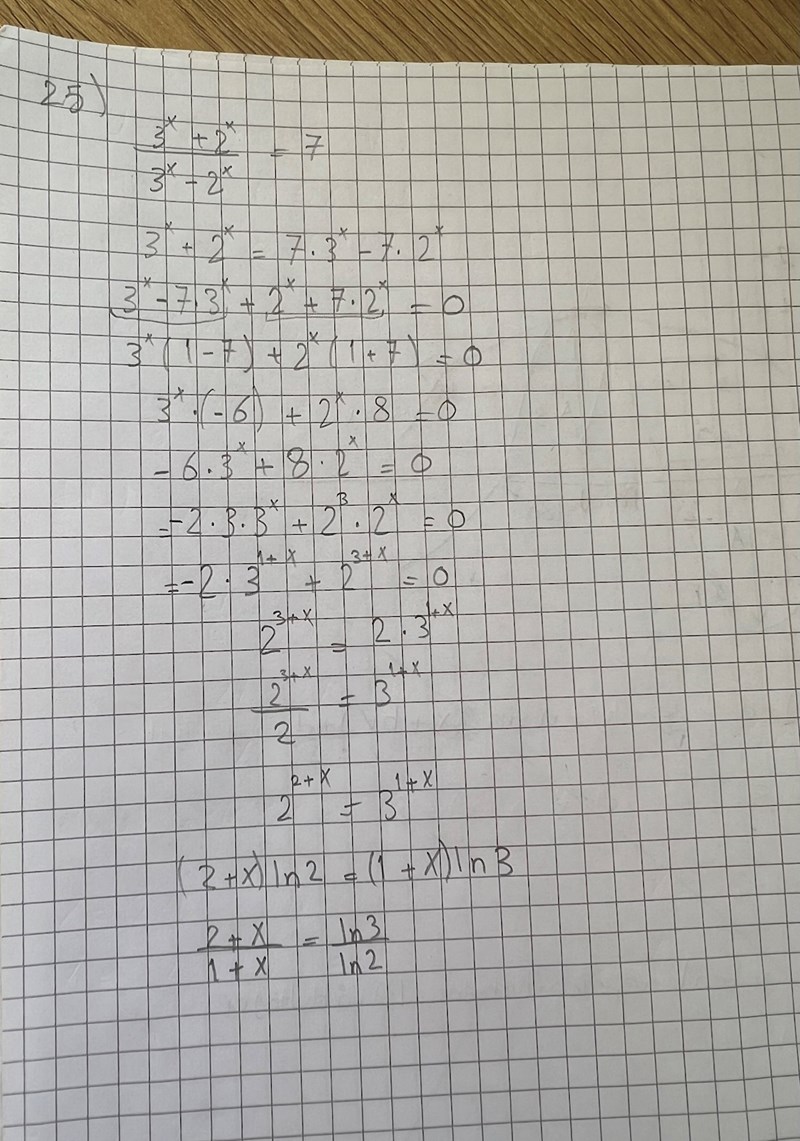 25)
(3^x + 2^x)/(3^x - 2^x) = 7
3^x + 2^x = 7·3^x - 7·2^x
3^x - 7·3^x + 2^x + 7·2^x = 0
3^x (1-7) + 2^x (1+7) = 0
3^x·(-6) + 2^x·8 = 0
-6·3^x + 8·2^x = 0
=-2·3·3^x + 2^3·2^x = 0
=-2·3^(1+x) + 2^(3+x) = 0
2^(3+x) = 2·3^(1+x)
2^(3+x)/2 = 3^(1+x)
2^(2+x) = 3^(1+x)
(2+x)ln2 = (1+x)ln3
(2+x)/(1+x) = ln3/ln2